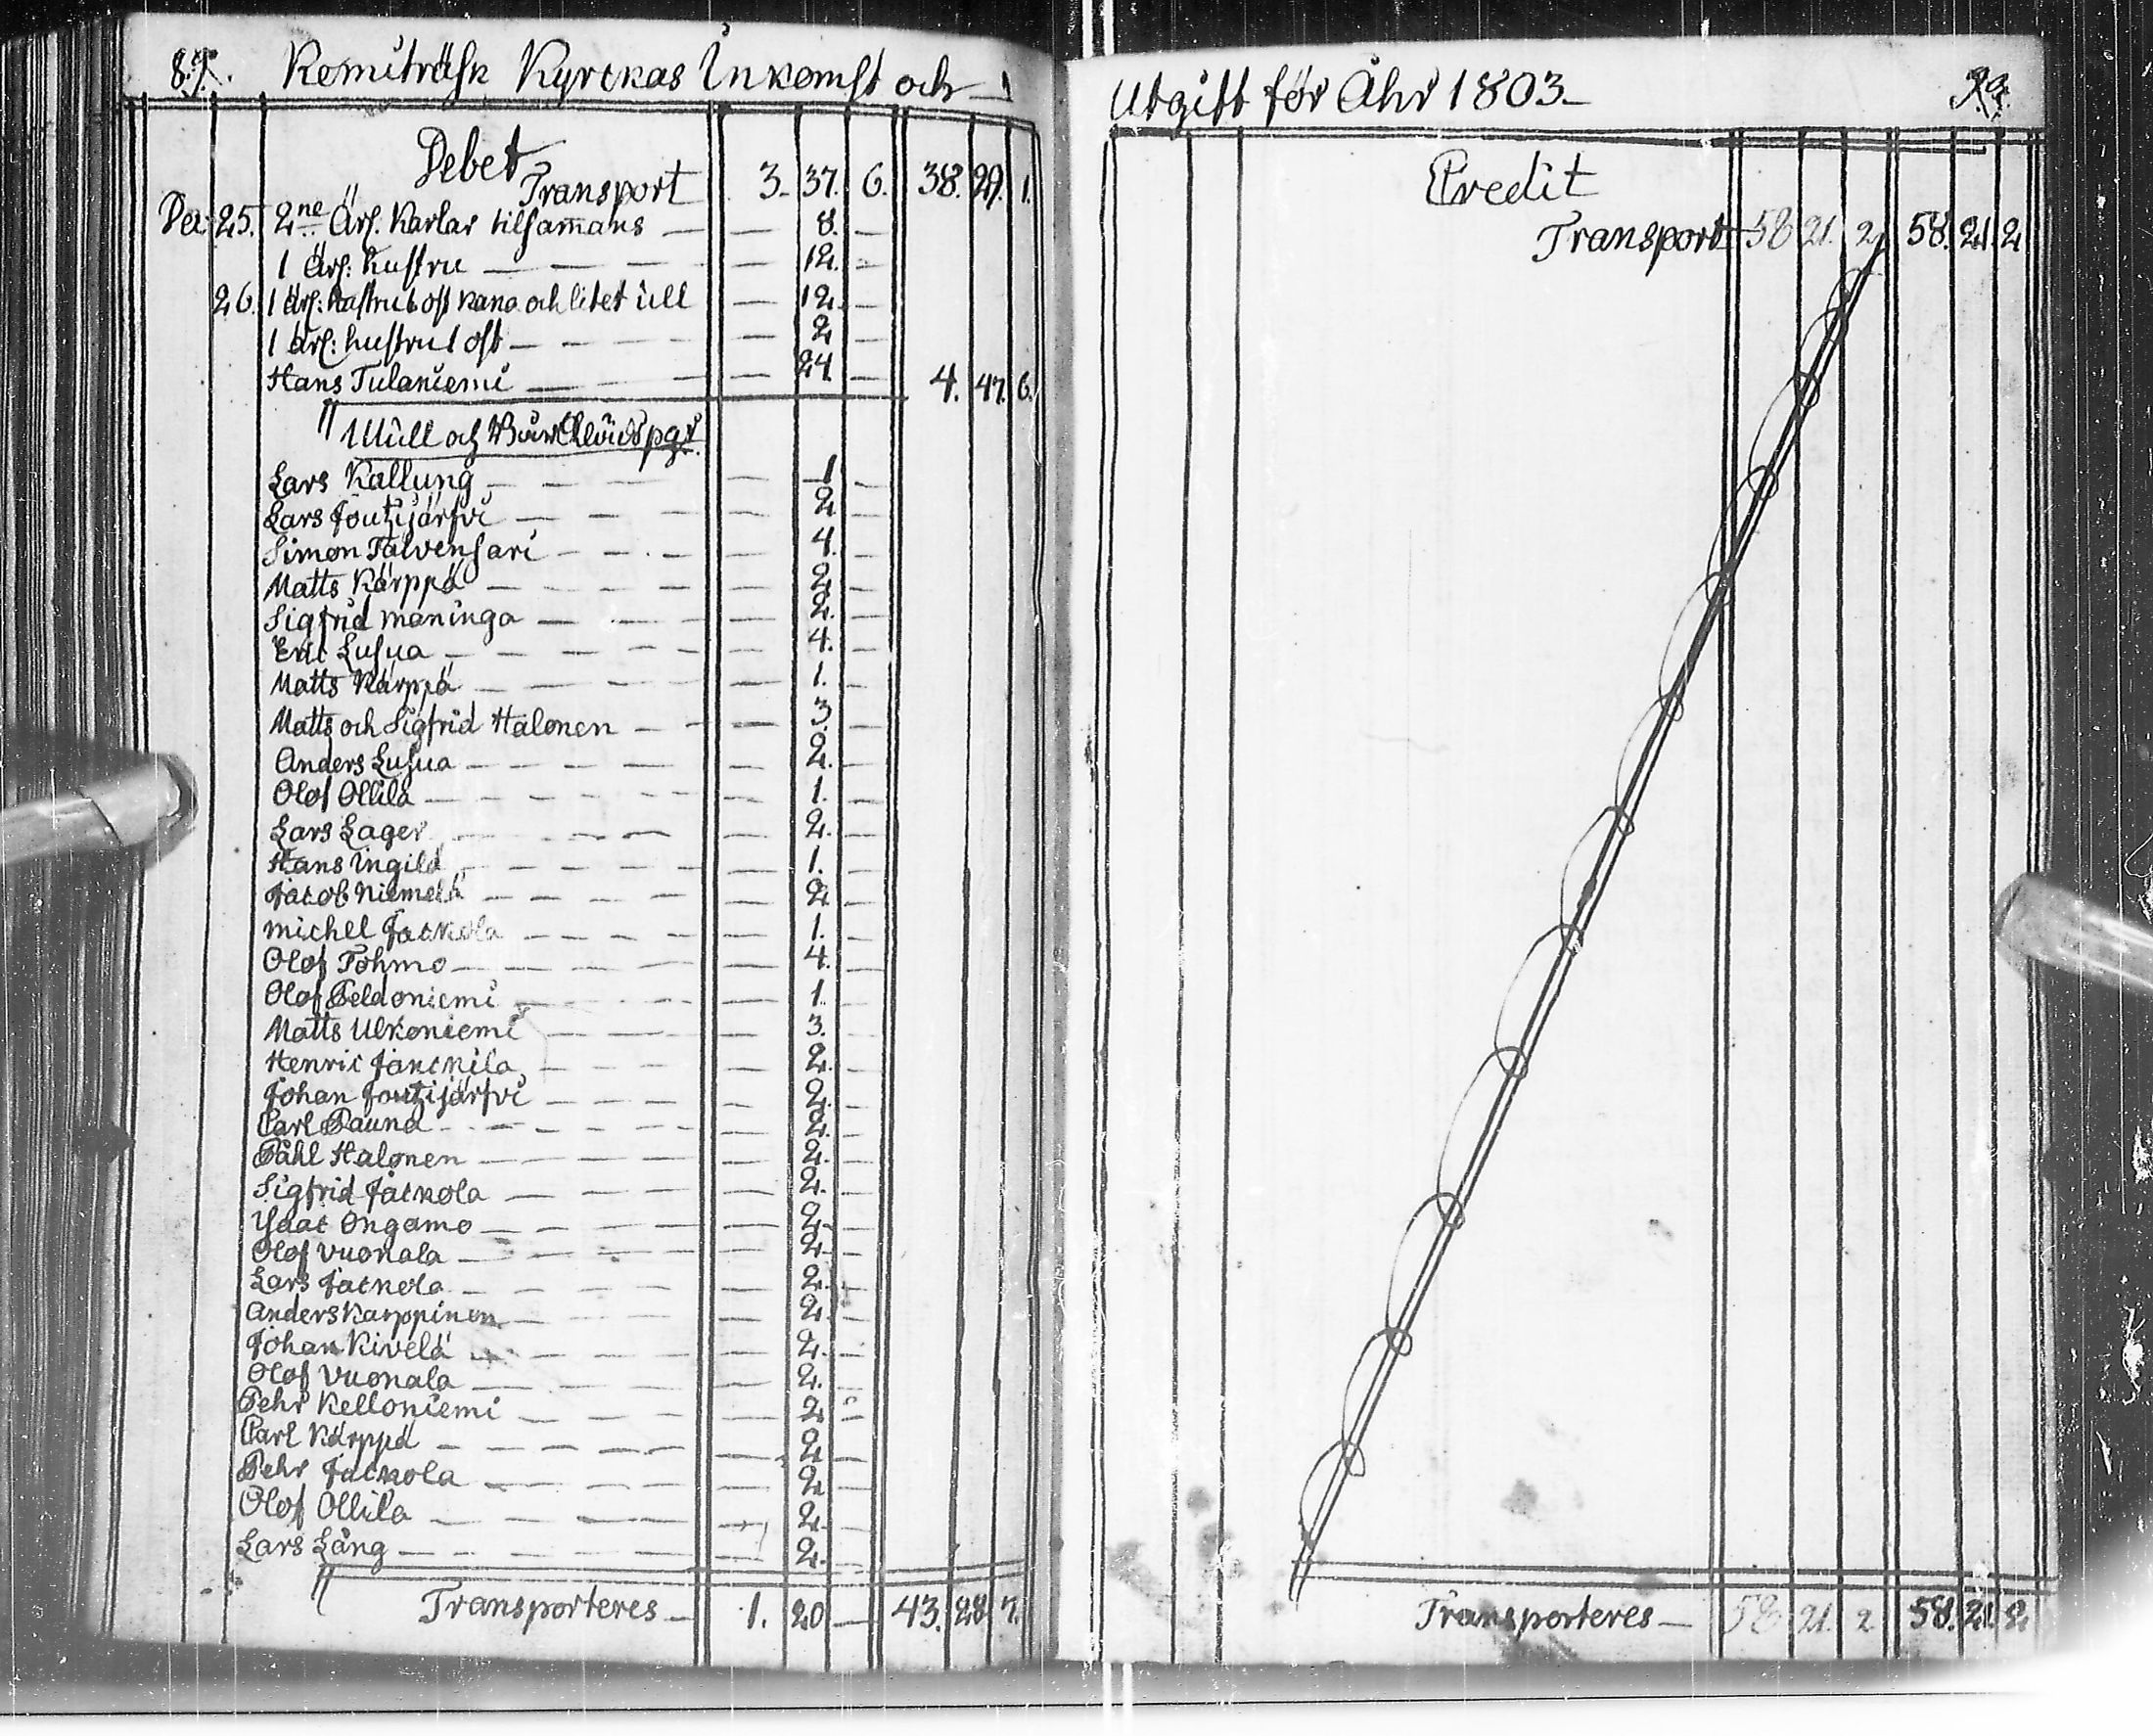 Kemiträsk Kyrckas Inkomst och
Debet
Transport 3. 37. 6. 38. 29. 1.
Dec: 25. 2ne Ärl. Karlar tilsam̄ans — 8. —
1 Ärl: hustru — — 12. —
26. 1 ärl: hustru 6 ost kana och litet ull — 12. —
1 ärl: hustru 1 ost — — 2 —
Hans Tulaniemi — — 24 — 4. 47. 6.
Lars Kallung — — 1 —
Lars Joutzijärfvi — — 2 —
Simon Talvensari — — 4. —
Matts Kärppä — — 2. —
Sigfrid maninga — — 2. —
Eric Lusua — — 4. —
Matts Kärppä — — 1. —
Matts och Sigfrid Halonen — — 3 —
Anders Lusua — — 2. —
Olof Ollila — — 1. —
Lars Lager — — 2. —
Hans Ingila — — 1. —
Jacob Niemelä — — 2 —
michel Jackola — — 1. —
Olof Tohmo — — 4. —
Olof Peldoniemi — — 1. —
Matts Ulkoniemi — — 3. —
Henric Jänckilä — — 2. —
Johan Joutzijärfvi — — 2. —
Carl Pauna — — 2. —
Påhl Halonen — — 2. —
Sigfrid Jackola — — 2. —
Ysaac Ongamo — — 2. —
Olof Vuonala — — 2. —
Lars Jackola — — 2. —
Anders Karppinen — — 2. —
Johan Kivelä — — 2. —
Olof Vuonala — — 2. —
Pehr Kelloniemi — — 2 —
Carl Kärppä — — 2 —
Pehr Jackola — — 2 —
Olof Ollila — — 2. —
Lars Lång — — 2. —
Transporteres — 1. 20 — 43. 28. 7.
Utgift för Åhr 1803.
Credit
Transport 58 21. 2 58. 21. 2
Transporteres — 58 21. 2 58. 21. 2